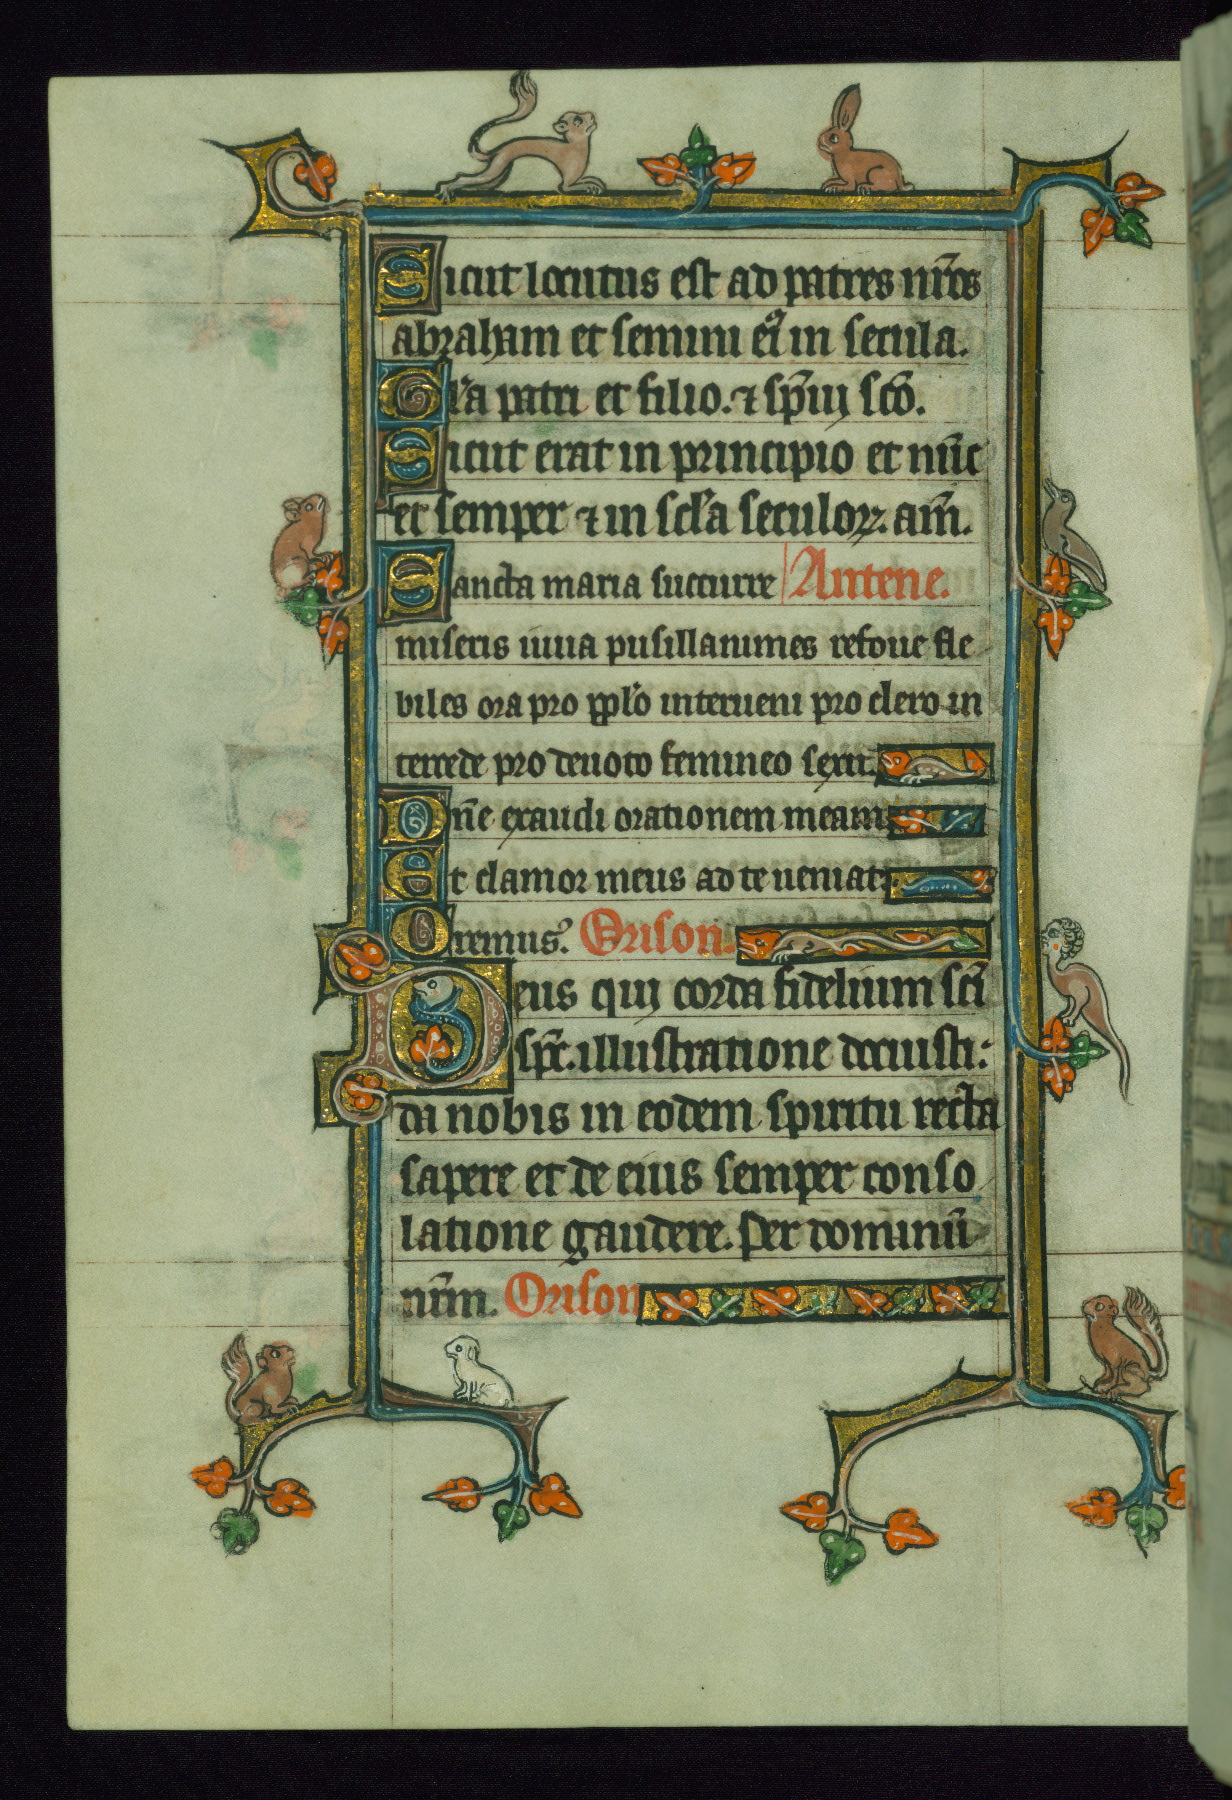 Sicut locutus est ad patres nr̄os
abraham et semini eiꝰ in secula.
Gl'a patri et filio. ⁊ sp̄ui sc̄o.
Sicut erat in principio et nūc
et semper ⁊ in scl'a seculoꝝ. am̄.
Sancta maria succurre Antene.
miseris iuua pusillanimes refoue fle
biles ora pro ppl'o interueni pro clero in
tercede pro deuoto femineo sexu.
Dn̄e exaudi orationem meam
Et clamor meus ad te ueniat.
Oremus. Orison.
Deus qui corda fidelium sc̄i
sp̄c. illustratione docuisti:
da nobis in eodem spiritu recta
sapere et de eius semper conso
latione gaudere. Per dominū
nr̄m. Orison